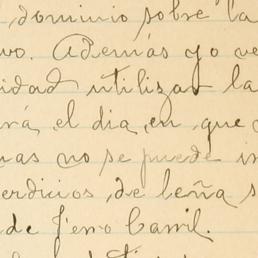 dominio sobre la
vo. Además yo ve
idad utilizar la
rá el dia, en que
as no se puede in
erdicios, de leña s
de Ferro Carril.